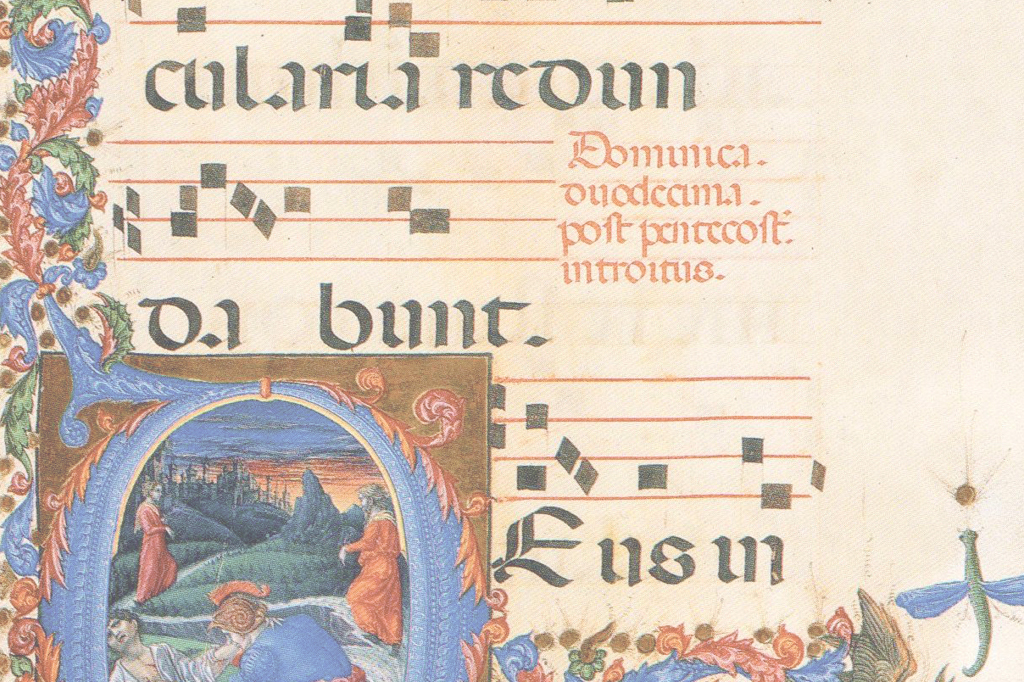 cularia redun
Dominica.
duodecima.
post pentecost.
introitus.
da bunt.
Eus in